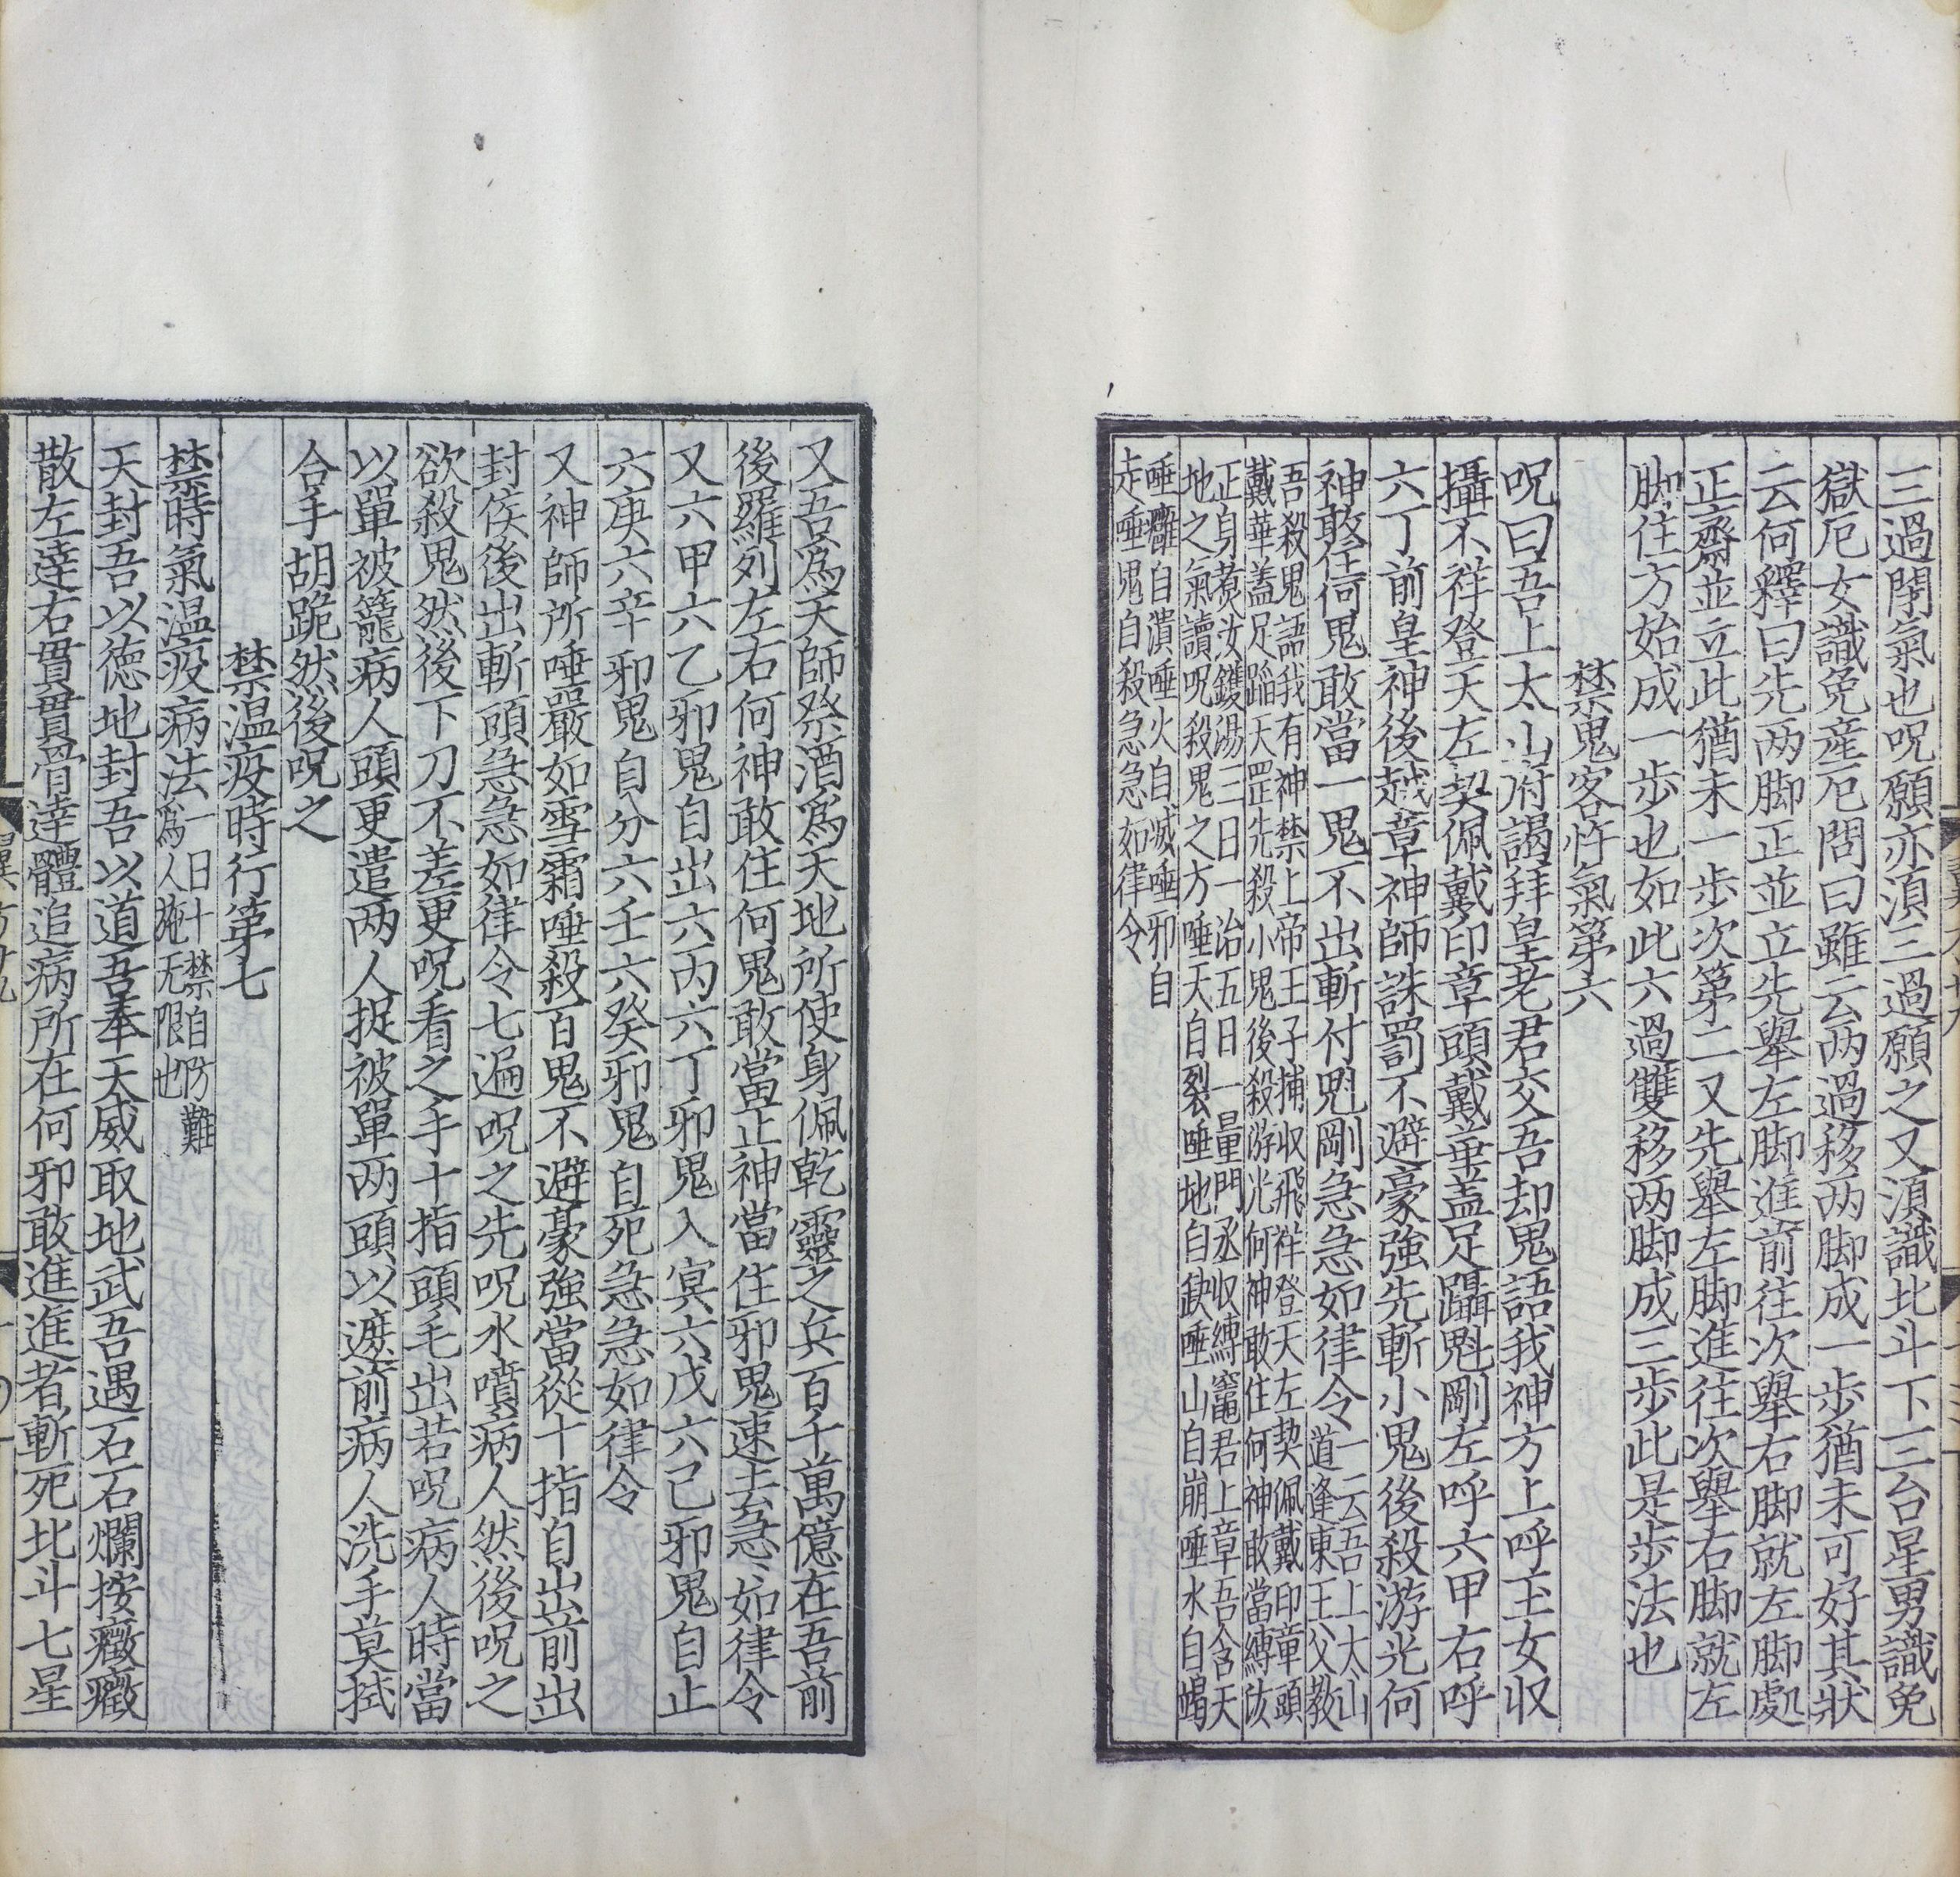 三過閉氣也呪願亦湏三過願之又湏識北斗下三台星男識免
獄厄女識免産厄問曰雖云两過移两脚成一歩猶未可好其狀
云何釋曰先两脚正並立先舉左脚進前往次舉右脚就左脚處
正齋並立此猶未一歩次第二又先舉左脚進往次舉右脚就左
脚住方始成一歩也如此六過雙移两脚成三歩此是歩法也
禁鬼客忤氣第六
呪曰吾上太山府謁拜皇老君交吾却鬼語我神方上呼玉女収
攝不祥登天左契佩戴印章頭戴華蓋足躡魁剛左呼六甲右呼
六丁前皇神後越章神師誅罰不避豪強先斬小鬼後殺游光何
神敢住何鬼敢當一鬼不出斬付魁剛急急如律令一云吾上太山
道逢東王父教
吾殺鬼語我有神禁上帝王子捕収飛祥登天左契佩戴印章頭
戴華蓋足蹈天罡先殺小鬼後殺游光何神敢住何神敢當縛汝
正身煑汝鑊湯三日一治五日一量門丞収縛竈君上章吾含天
地之氣讀呪殺鬼之方唾天自裂唾地自缺唾山自崩唾水自竭
唾癰自潰唾火自滅唾邪自
走唾鬼自殺急急如律令
又吾爲天師祭酒爲天地所使身佩乾靈之兵百千萬億在吾前
後羅列左右何神敢住何鬼敢當正神當住邪鬼速去急急如律令
又六甲六乙邪鬼自出六丙六丁邪鬼入㝠六戊六己邪鬼自止
六庚六辛邪鬼自分六壬六癸邪鬼自死急急如律令
又神師所唾嚴如雪霜唾殺百鬼不避豪強當從十指自出前出
封侯後出斬頭急急如律令七遍呪之先呪水噴病人然後呪之
欲殺鬼然後下刀不差更呪看之手十指頭毛出若呪病人時當
以單被籠病人頭更遣两人捉被單两頭以遮前病人洗手莫拭
合手胡跪然後呪之
禁温疫時行第七
禁時氣温疫病法一日十禁自防難
爲人施无限也
天封吾以徳地封吾以道吾奉天威取地武吾遇石石爛按癥癥
散左達右貫貫骨達體追病所在何邪敢進進者斬死北斗七星